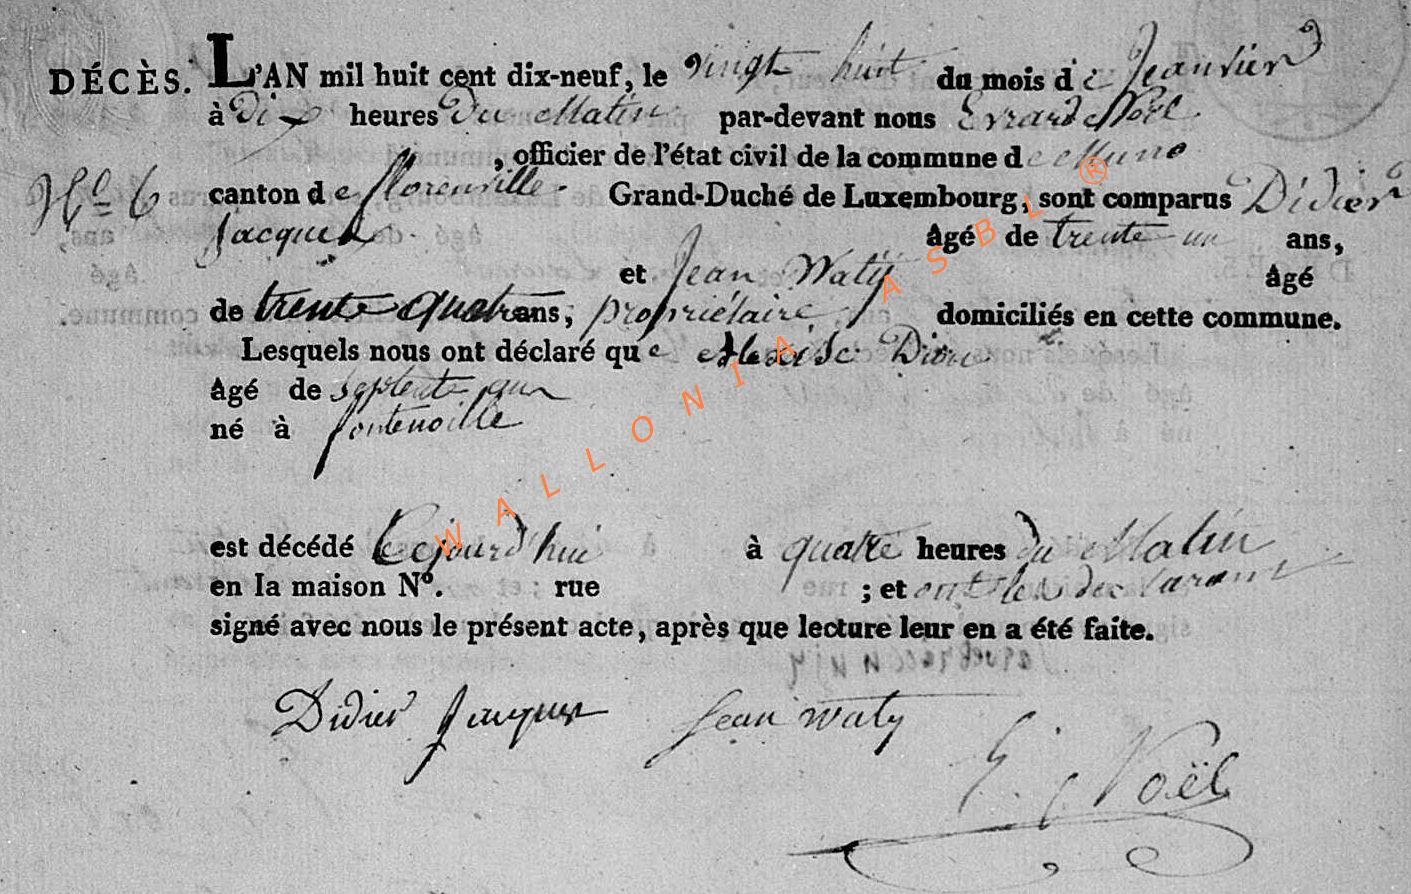 DÉCÈS. L'AN mil huit cent dix-neuf, le vingt huit du mois de Janvier
à Dix heures Du Matin par-devant nous Evrard Noël
, officier de l'état civil de la commune de Muno
N° 6 canton de florenville. Grand-Duché de Luxembourg, sont comparus Didier
Jacques âgé de trente un ans,
et Jean Waty âgé
de trente quatre ans, propriétaire domiciliés en cette commune.
Lesquels nous ont déclaré que
âgé de septente
né à fontenoille
est décédé Cejourd'hui à quatre heures du Matin
en la maison N°. rue ; et ont les declarant
signé avec nous le présent acte, après que lecture leur en a été faite.
Didier Jacques Jean Waty
E. Noël
WALLONIA ASBL ®